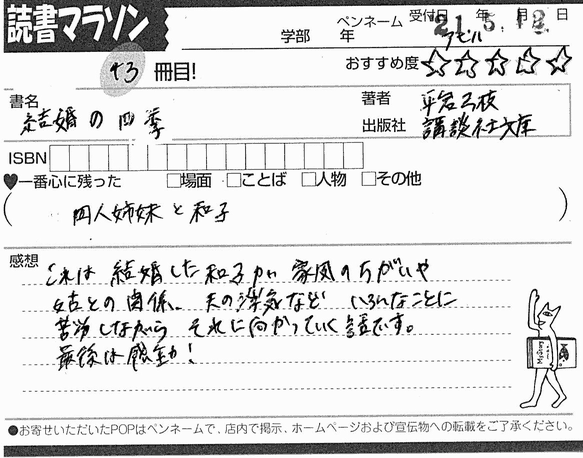 読書マラソン
学部 年 ペンネーム アピル 受付日 21年 5月 12日
43冊目! おすすめ度☆☆☆☆☆
書名 結婚の四季
著者 平岩弓枝
出版社 講談社文庫
ISBN
♥一番心に残った □場面 □ことば □人物 □その他
(四人姉妹と和子)
感想 これは結婚した和子が家風のちがいや
姑との関係、夫の浮気など いろんなことに
苦労しながら それに向かっていく話です。
最後は感動!
●お寄せいただいたPOPはペンネームで、店内で掲示、ホームページおよび宣伝物への転載をご了承ください。